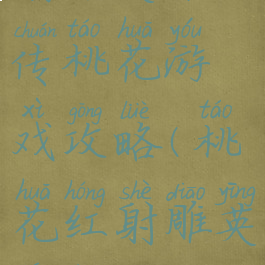 chuán táo huā yóu
传桃花游
xì gōng lüè táo
戏攻略(桃
huā hóng shè diāo yīng
花红射雕英